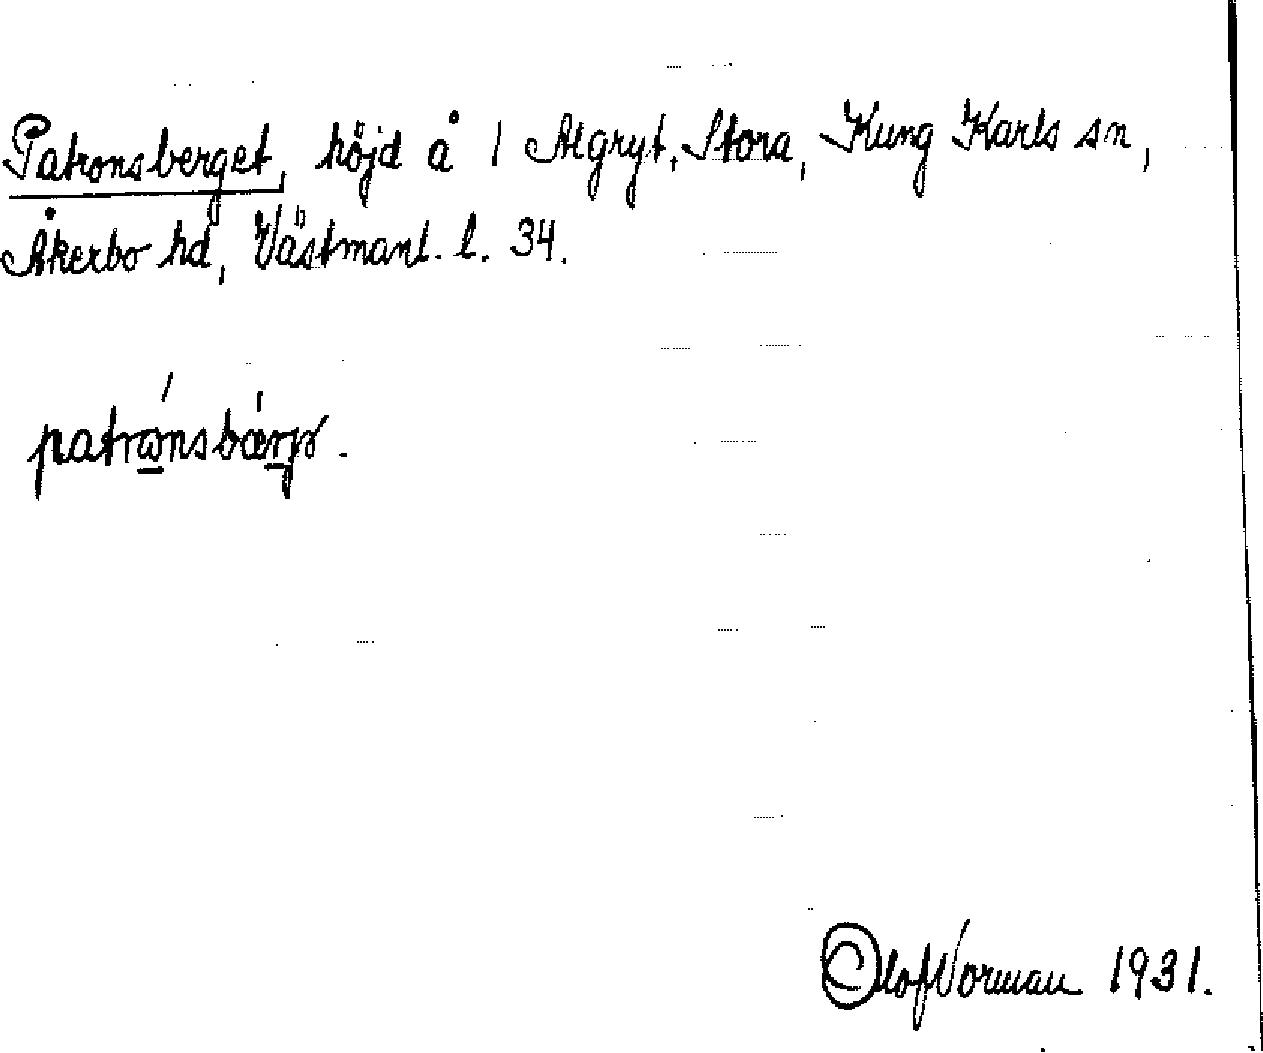 Patronsberget, höjd å 1 Algryt, Stora, Kung Karls sn,
Åkerbo hd, Västmanl. l. 34.
Olof Norman 1931.